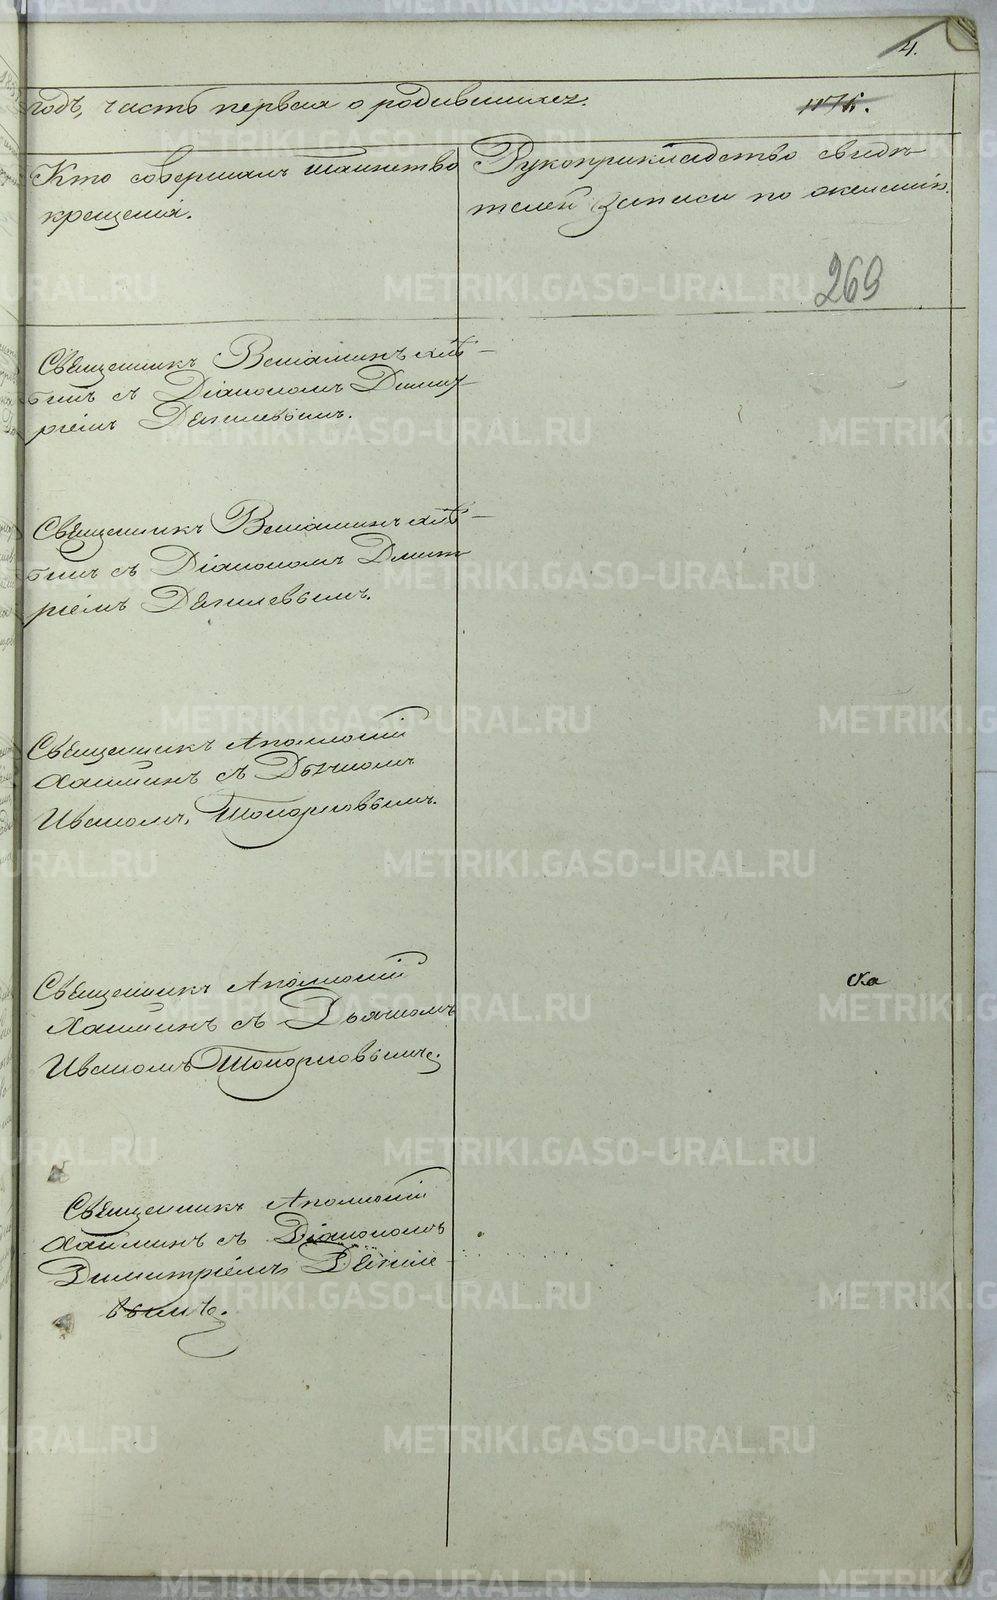 4.
годъ, часть первая о родившихся.
1175.
Кто совершалъ таинство
крещенія.
Рукоприкладство свидѣ-
телей записи по желанію.
269
Священникъ Веніаминъ Аля-
бинъ съ Діакономъ Димит-
ріемъ Дягилевымъ.
Священникъ Веніаминъ Аля-
бинъ съ Діакономъ Димит-
ріемъ Дягилевымъ.
Священникъ Аполлоній
съ Дьячкомъ
Иваномъ Топорковымъ.
Священникъ Аполлоній
съ Дьячкомъ
Иваномъ Топорковымъ.
Священникъ Аполлоній
съ Діакономъ
Димитріемъ Дягиле-
вымъ.
METRIKI.GASO-URAL.RU